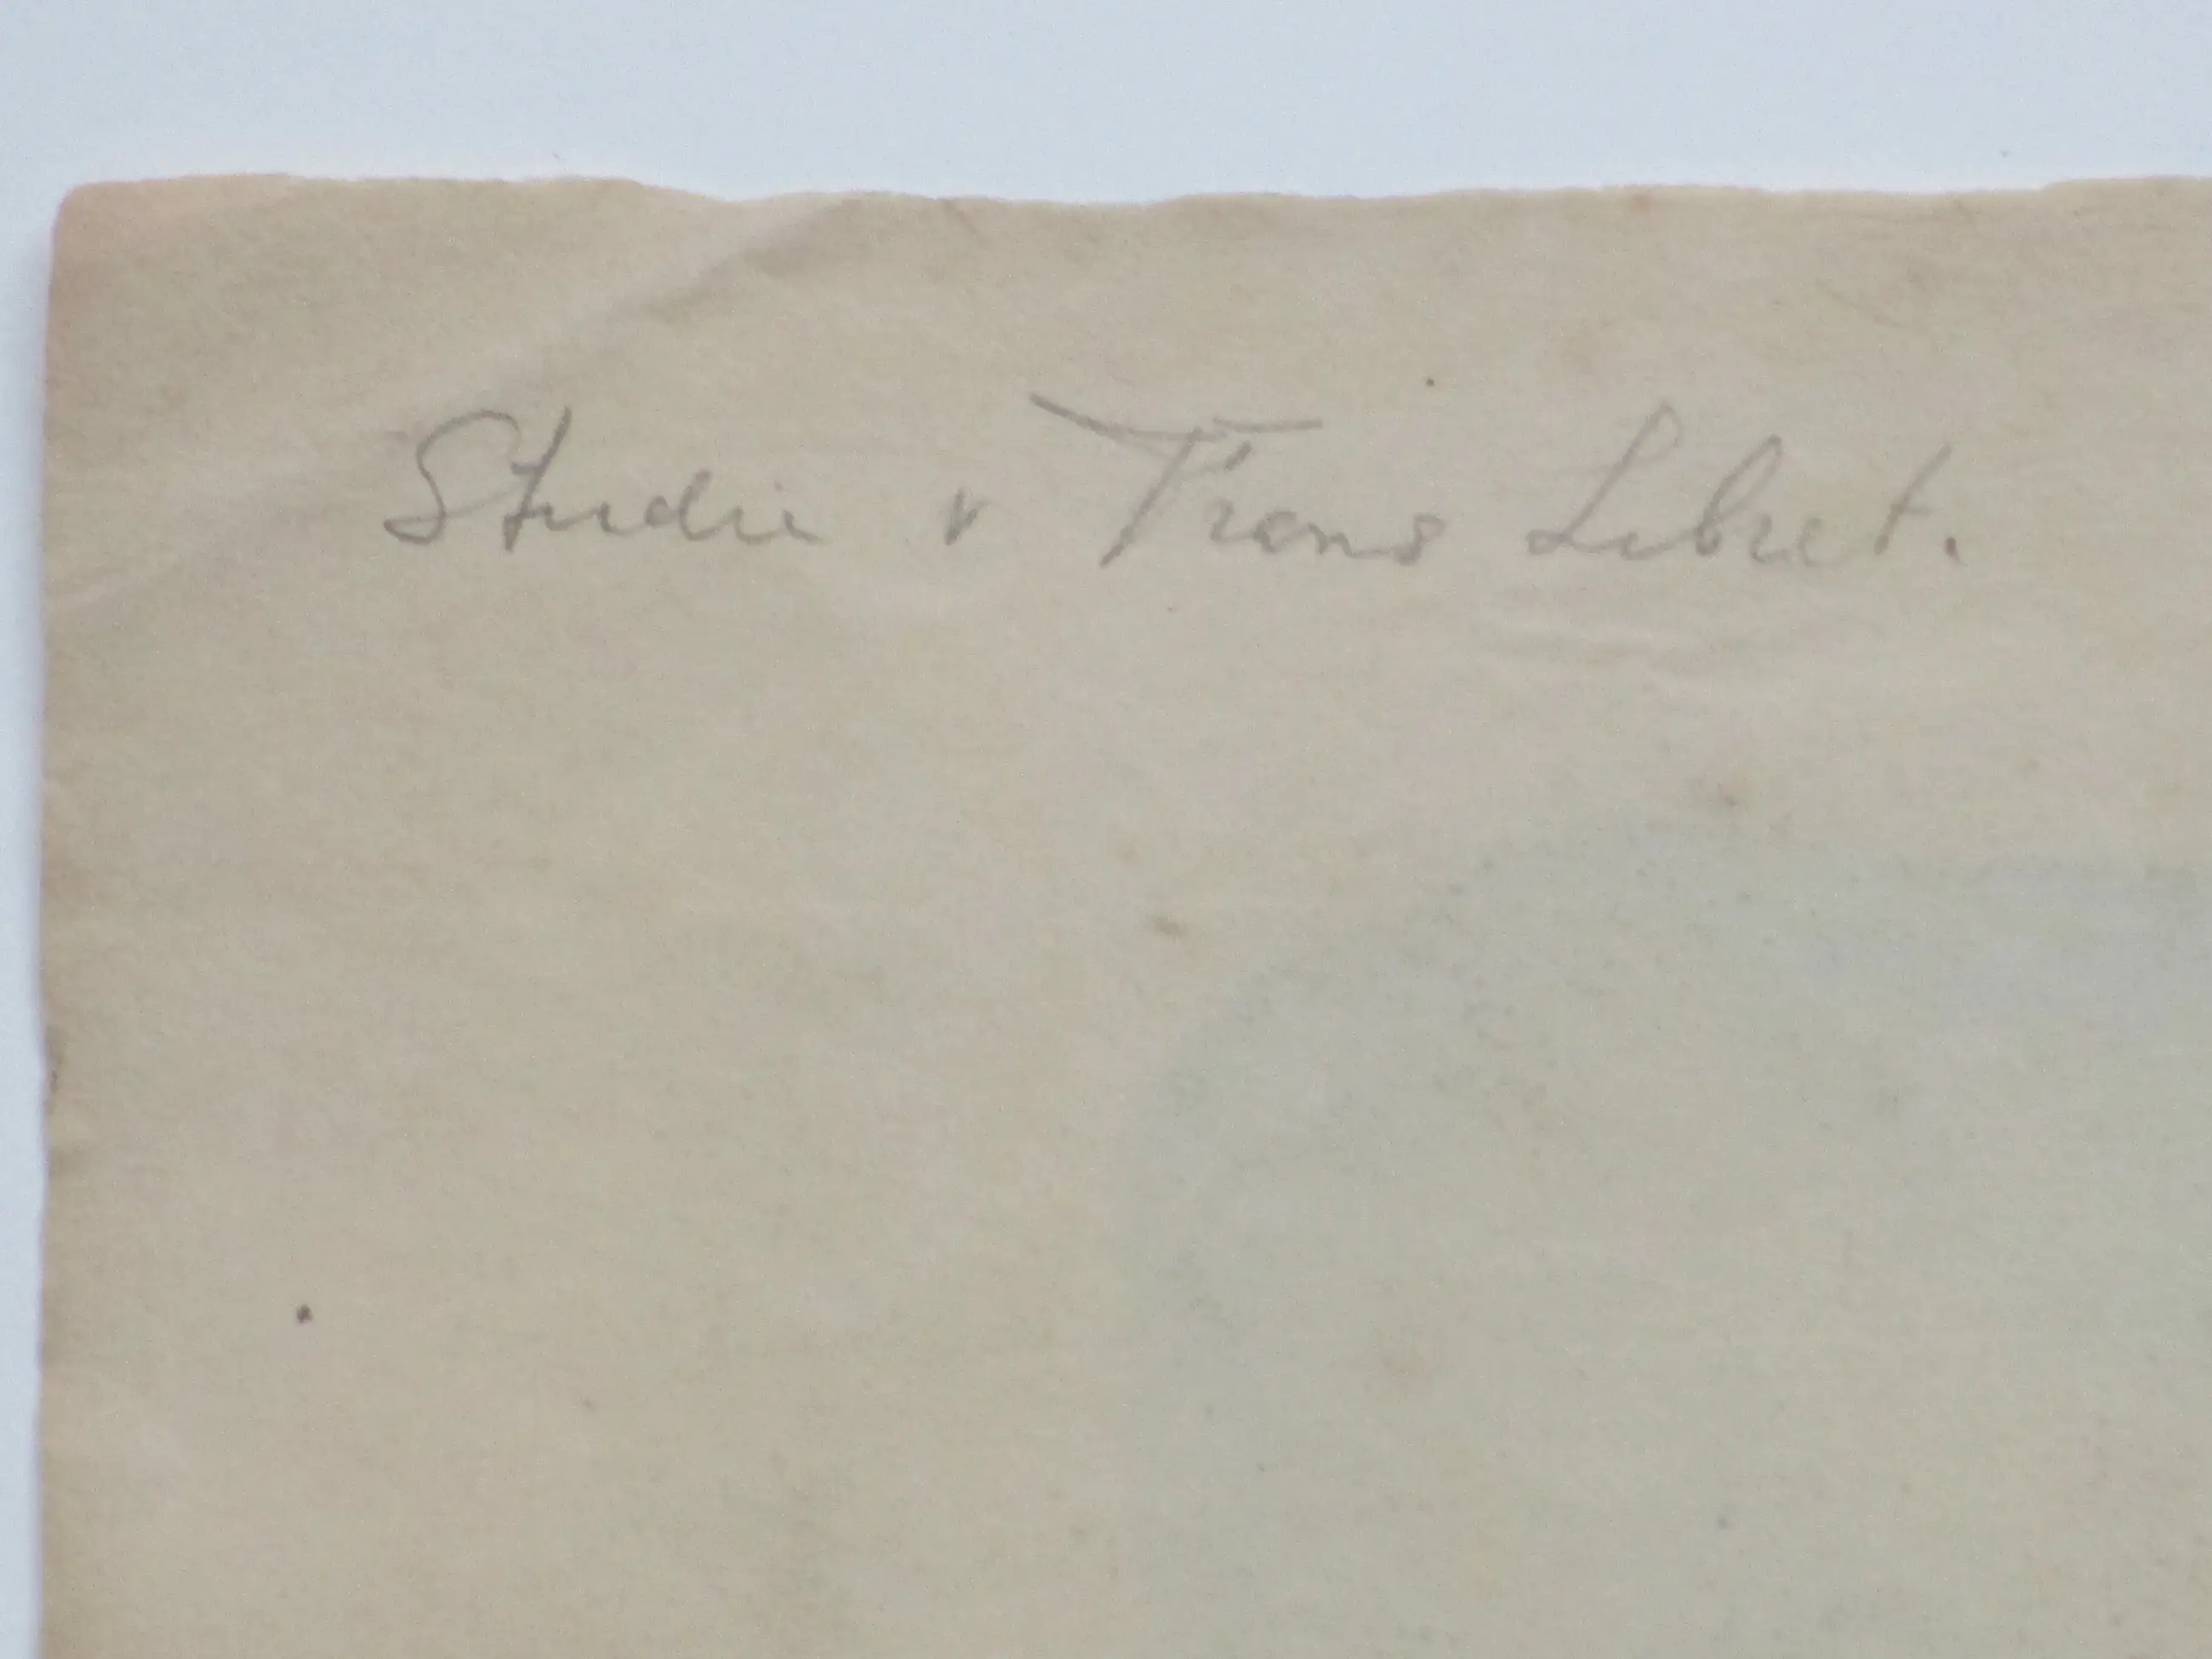 Studie v Frans Lebret.